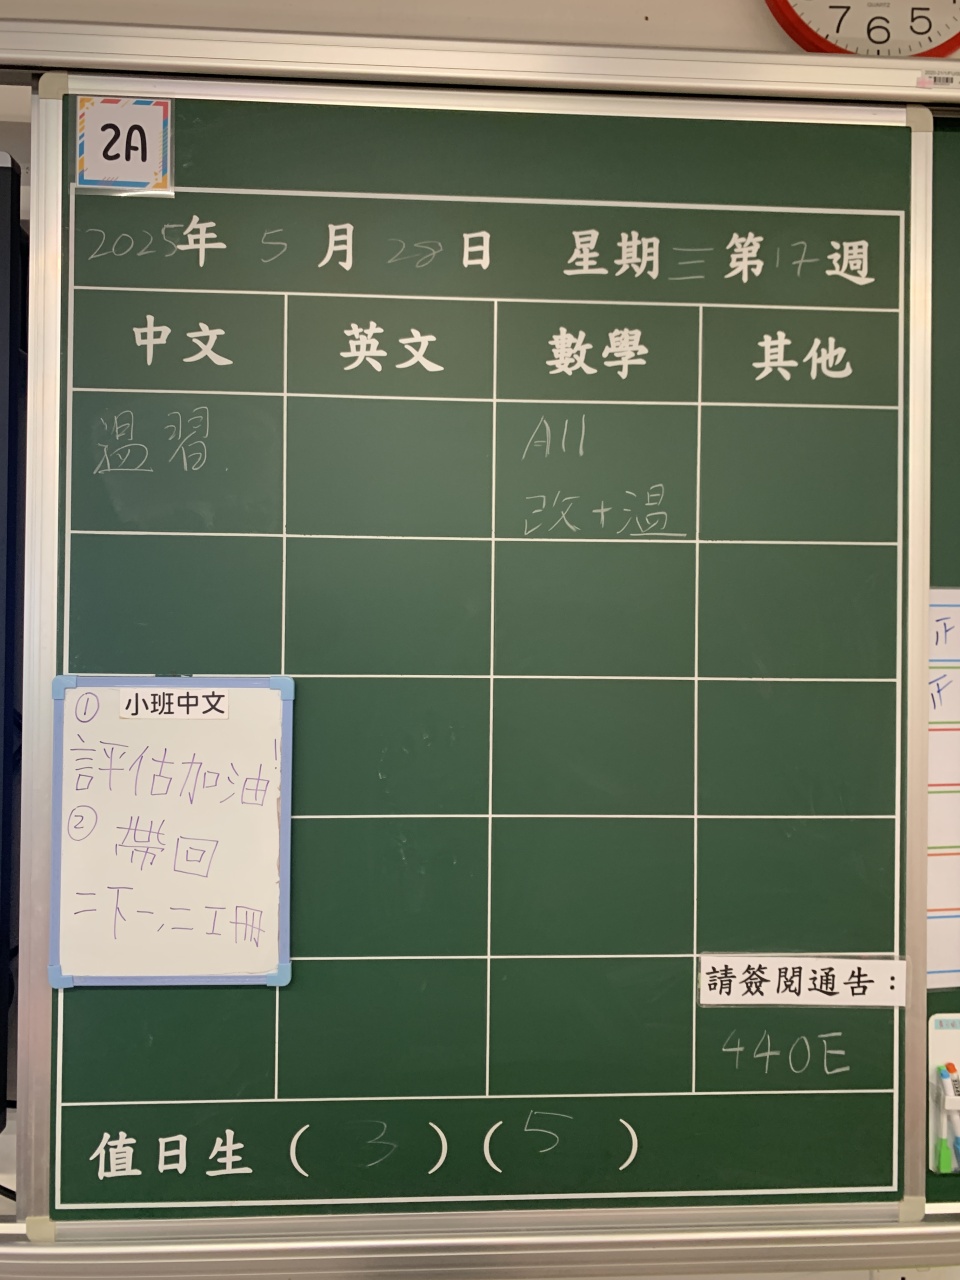 QUARTZ
7 6 5
2A
2025年 5 月 28 日 星期三第17週
中文 英文 數學 其他
溫習. All
改+溫
① 小班中文
評估加油!
② 帶回
二下一,二工冊
正
正
請簽閱通告：
440E
值日生( 3 )( 5 )